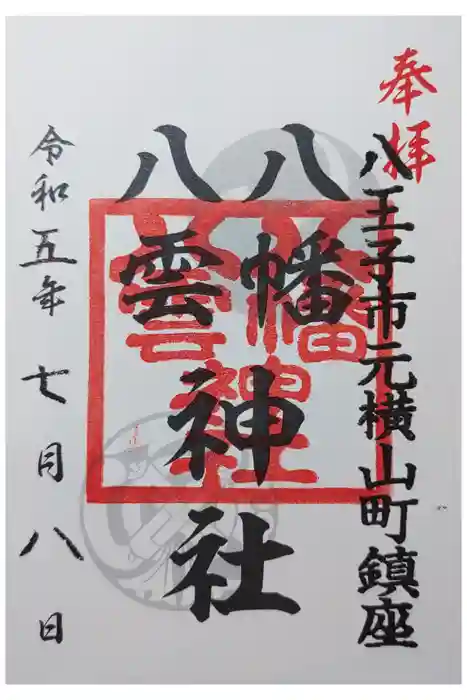 奉拝
八王子市元横山町鎮座
八幡
八雲
神社
令和五年七月八日